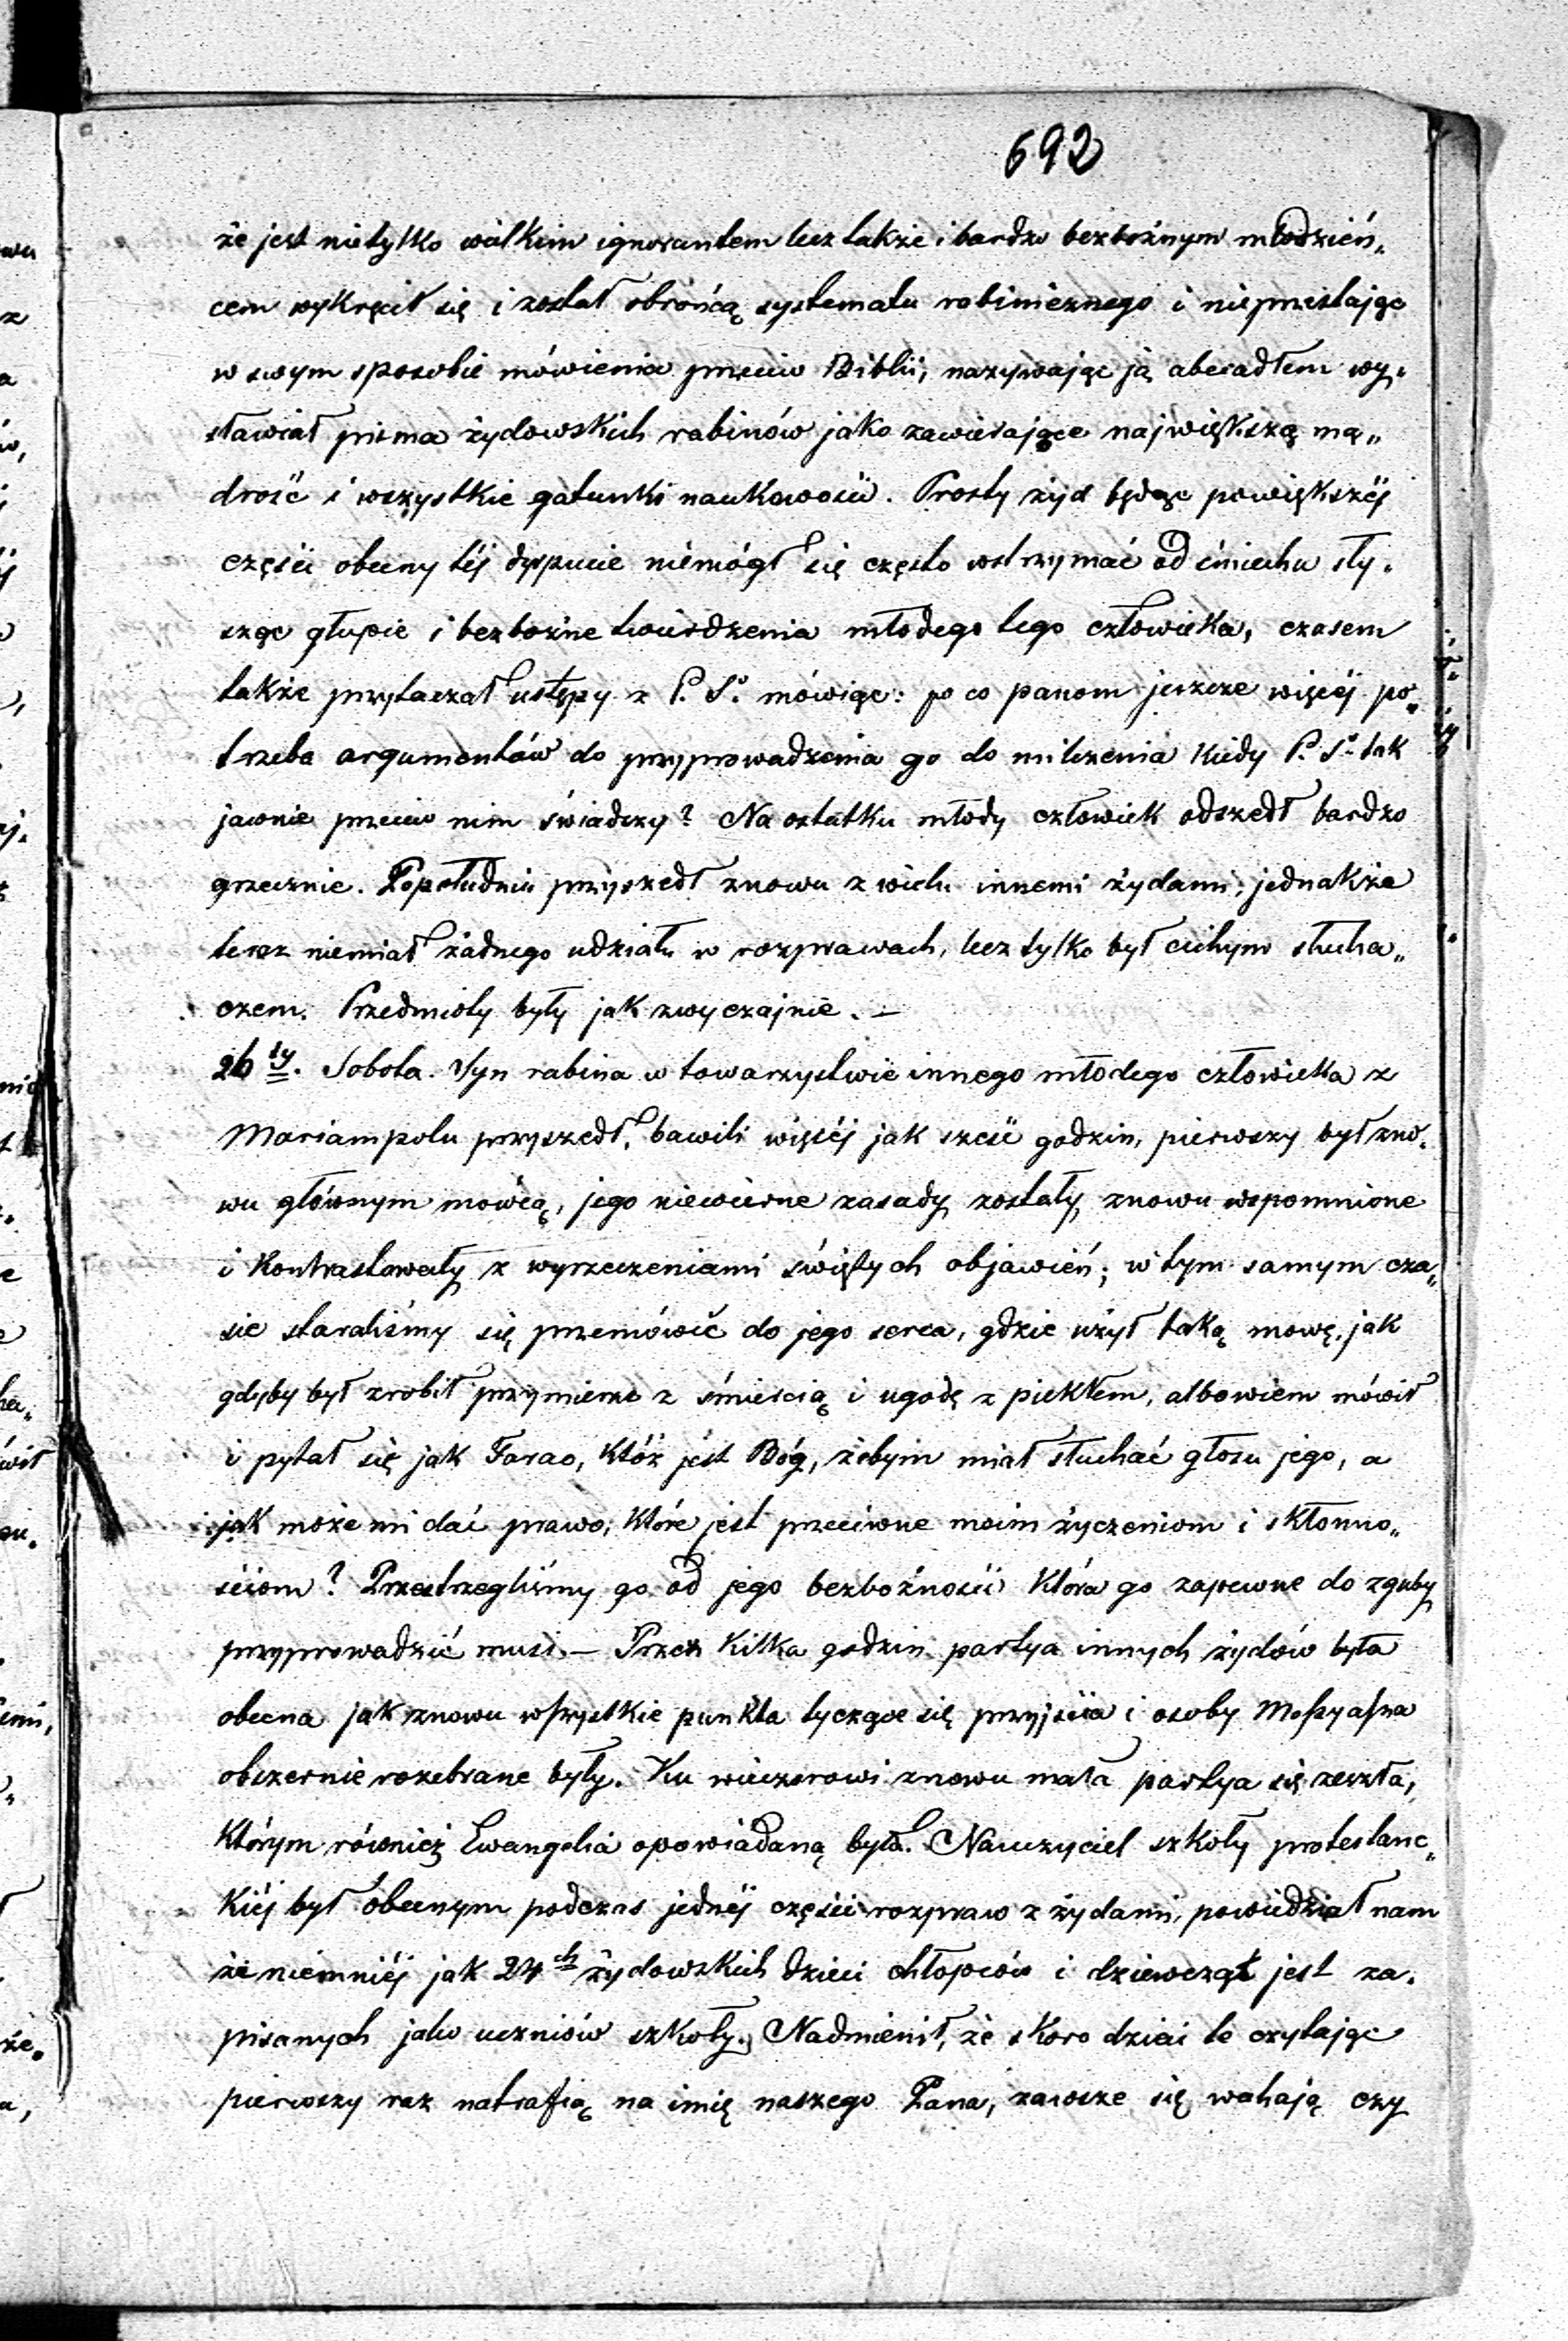 692
że jest nietylko wielkim ignorantem lecz także i bardzo bezbożnym młodzień„
cem wykręcił się i został obrońcą systematu rabinicznego i nieprzestając
w swym sposobie mówienia przeciw Biblii, nazywając ją abecadłem wy„
stawiał pisma żydowskich rabinów jako zawierające największą mą„
drość i wszystkie gatunki naukowości. Prosty żyd będąc powiększéj
części obecny téj dyspucie niémógł się często wstrzymać od śmiechu sły„
sząc głupie i bezbożne twierdzenia młodego tego człowieka, czasem
także przytaczał ustępy z P. S. mówiąc: po co panom jeszcze więcéj po„
trzeba argumentów do przyprowadzenia go do milczenia kiedy P. S. tak
jawnie przeciw nim świadczy? Na ostatku młody człowiek odszedł bardzo
grzecznie. Popołudniu przyszedł znowu z wielu innemi żydami; jednakże
teraz niemiał żadnego udziału w rozprawach, lecz tylko był cichym słucha„
czem. Przedmioty były jak zwyczajnie. —
26ty. Sobota. Syn rabina w towarzystwie innego młodego człowieka z
Mariampolu przyszedł, bawili więcéj jak sześć godzin, pierwszy był zno„
wu głównym mówcą, jego niewierne zasady zostały znowu wspomnione
i kontrastowały z wyrzeczeniami świętych objawień; w tym samym cza„
sie staraliśmy się przemówić do jego serca, gdzie użył taką mowę, jak
gdyby był zrobił przymierze z śmiercią i ugodę z piekłem, albowiem mówił
i pytał się jak Farao, któż jest Bóg, żebym miał słuchać głosu jego, a
jak może mi dać prawo, które jest przeciwne moim życzeniom i skłonno„
ściom? Przestrzegliśmy go od jego bezbożności która go zapewne do zguby
przyprowadzić musi. — Przez kilka godzin partya innych żydów była
obecna jak znowu wszystkie punkta tyczące się przyjścia i osoby Messyasza
obszernie rozebrane były. Ku wieczorowi znowu mała partya się zeszła,
którym również Ewangelia opowiadaną była. Nauczyciel szkoły protestanc„
kiéj był obecnym podczas jednéj części rozpraw z żydami, powiedział nam
że niemniéj jak 24ch żydowskich dzieci chłopców i dziewcząt jest za„
pisanych jako uczniów szkoły. Nadmienił, że skoro dzieci te czytając
pierwszy raz natrafią na imię naszego Pana, zawsze się wahają czy